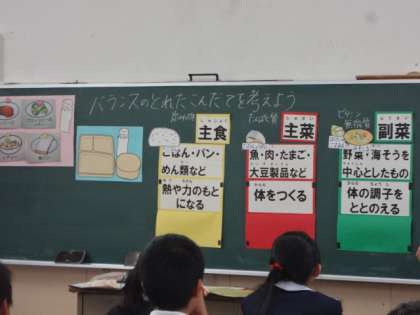 バランスのとれたこんだてを考えよう
主食
ごはん・パン・
めん類など
熱や力のもと
になる
主菜
魚・肉・たまご・
大豆製品など
体をつくる
副菜
野菜・海そうを
中心としたもの
体の調子を
ととのえる